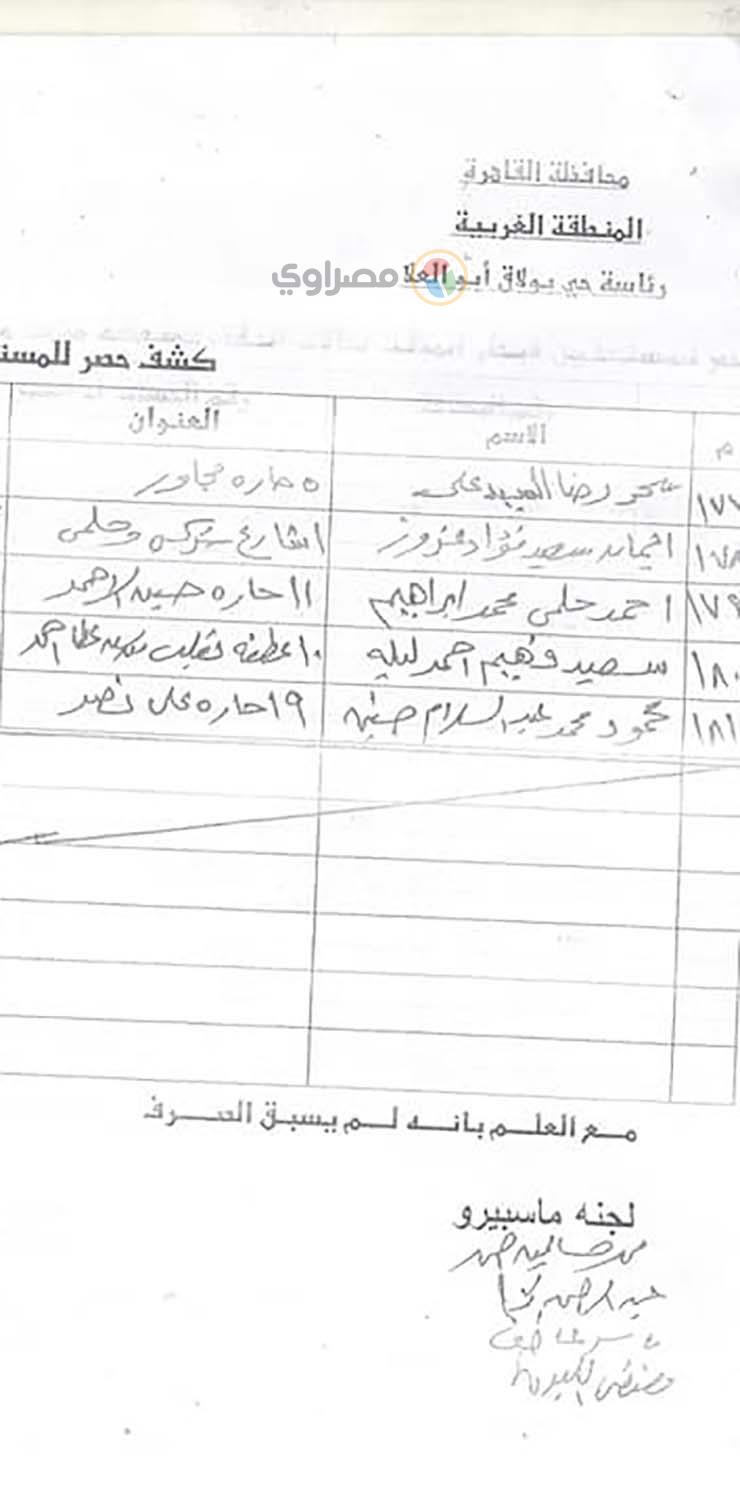 محافظة القاهرة
المنطقة الغربية
رئاسة حي بولاق أبو العلا
مصراوي
كشف حصر للمست
م الاسم العنوان
١٧٧ سحر رضا السيد على ٥ حاره مجاور
١٧٨ ايمان سعيد فؤاد فنروز ١ شارع شركس وحلمى
١٧٩ احمد حلمى محمد ابراهيم ١١ حاره حسين الاحمد
١٨٠ سعيد فهيم احمد ليله ١٠ عطفه احمد
١٨١ محمود محمد عبد السلام حسنين ١٩ حاره على نصر
مع العلم بانه لم يسبق الصرف
لجنه ماسبيرو